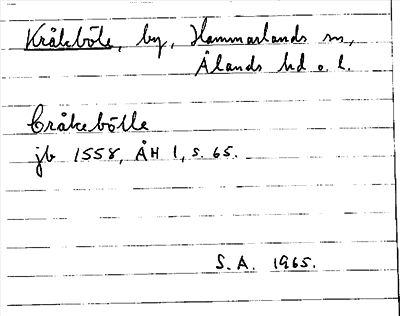 Kråkböle, by, Hammarlands sn,
Ålands hd o. l.
Cråkebölle
jb 1558, ÅH 1, s. 65.
S.A. 1965.